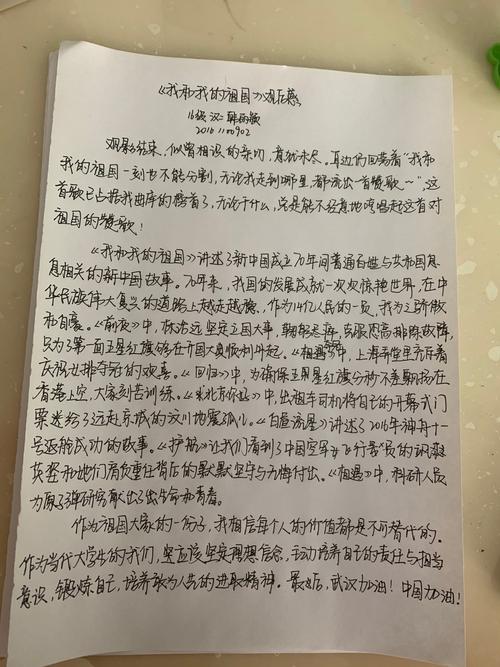 《我和我的祖国》观后感
16级 汉二 韩雨
20161100902
观影结束,似曾相识的亲切,意犹未尽。耳边仍回荡着“我和
我的祖国一刻也不能分割,无论我走到哪里,都流出一首赞歌~”,这
首歌已占据我曲库的榜首了,无论干什么,总是能不经意地哼唱起这首对
祖国的赞歌!
《我和我的祖国》讲述了新中国成立70年间普通百姓与共和国息
息相关的新中国故事。70年来,我国的发展成就一次次惊艳世界,在中
华民族伟大复兴的道路上越走越稳,作为14亿人民的一员,我为之骄傲
和自豪。《前夜》中,林治远坚定立国大事,,克服恐高排除故障,
只为了第一面五星红旗能够在开国大典顺利升起。《相遇》中,上海弄堂里充斥着
庆祝女排夺冠的欢喜。《回归》中,为确保五星红旗分秒不差飘扬在
香港上空,大家刻苦训练。《北京你好》中,出租车司机将自己的开幕式门
票送给了远赴京城的汶川地震孤儿。《白昼流星》讲述了2016年神舟十一
号返航成功的故事。《护航》让我们看到了中国空军女飞行员的飒爽
英姿和她们肩负重任背后的默默坚守与无悔付出。《相遇》中,科研人员
为原子弹研究献出了生命和青春。
作为祖国大家的一份子,我相信每个人的价值都是不可替代的。
作为当代大学生的我们,更应该坚定理想信念,主动培养自己的责任与担当
意识,锻炼自己,培养敢为人先的进取精神。最后,武汉加油!中国加油!